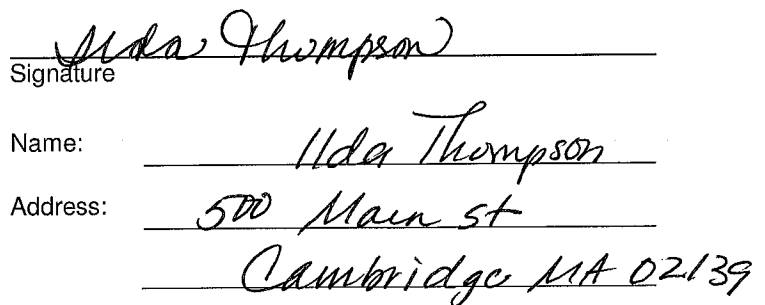 Ilda Thompson
Signature
Name: Ilda Thompson
Address: 500 Main st
Cambridge MA 02139